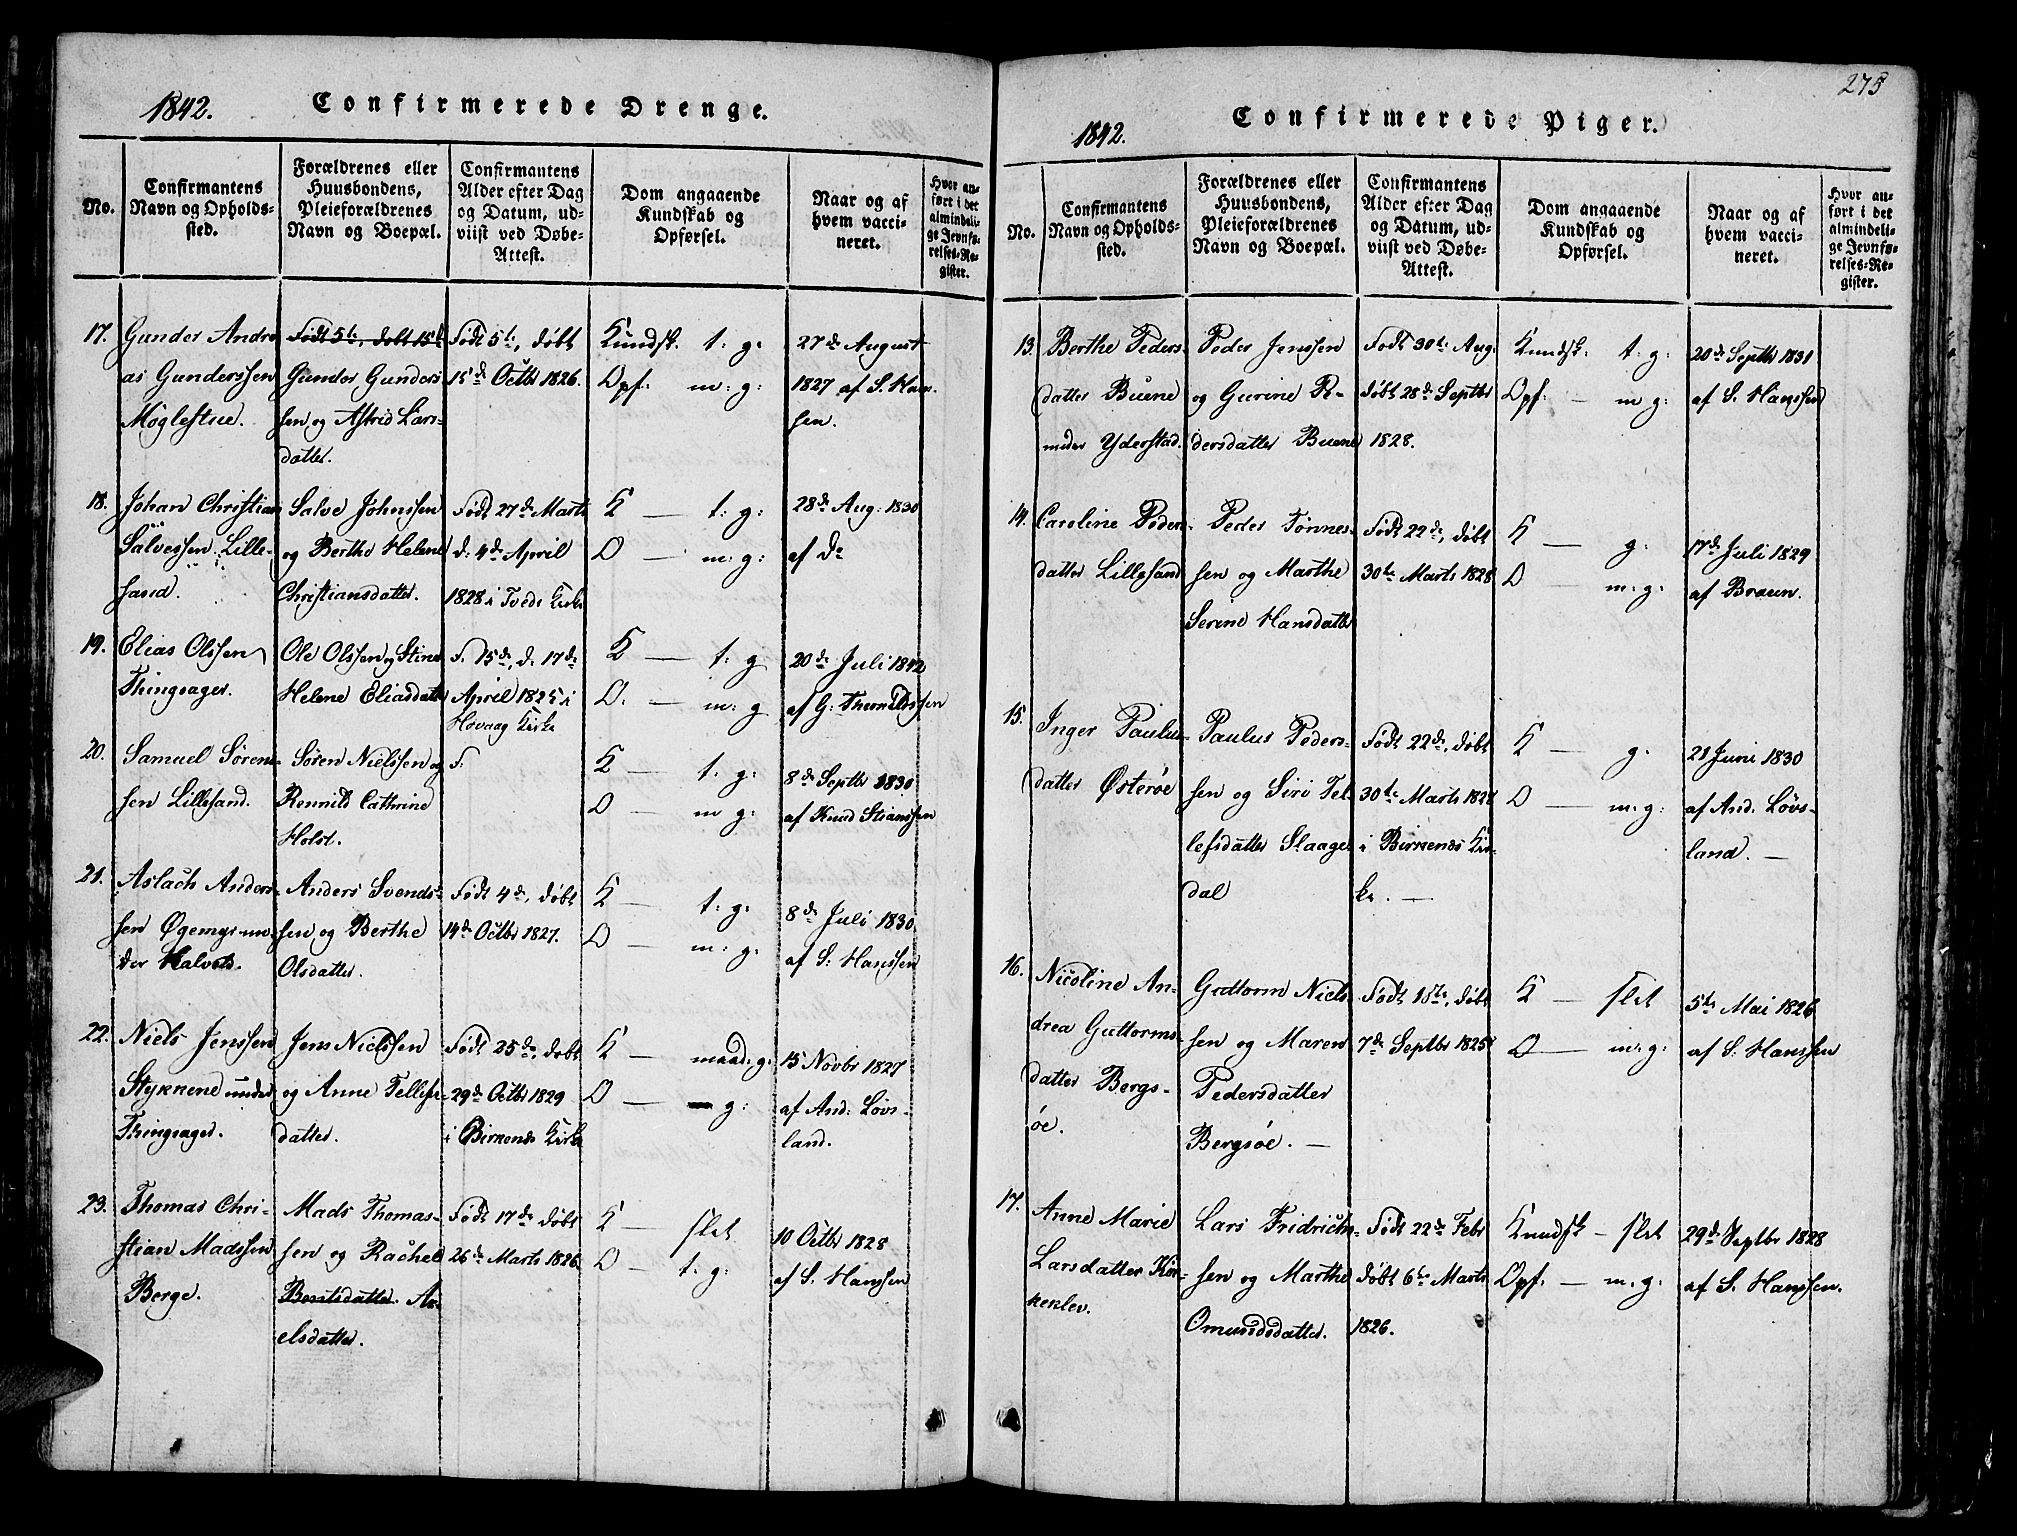 1842. Confirmerede Drenge.
No.
Confirmantens
Navn og Opholds-
sted.
Forældrenes eller
Huusbondens,
Pleieforældrenes
Navn og Boepæl.
Confirmantens
Alder efter Dag
og Datum, ud-
viist ved Døbe-
Attest.
Dom angaaende
Kundskab og
Opførsel.
Naar og af
hvem vacci-
neret.
Hvor an-
ført i det
almindeli-
ge Jevnfø-
relses-Re-
gister.
17.
Gunder Andre
as Gunderssen
Møglestue.
Født 5te, døbt 15de
Gunder Gunders
sen og Astrid Lars-
datter.
Født 5te, døbt
15de Octbr 1826.
Kundsk. t: g:
Opf: m: g:
27de August
1827 af S. Han-
sen.
18.
Johan Christian
Salvessen Lille-
sand.
Salve Johnssen
og Berthe Helene
Christiansdatter.
Født 27de Marts
d. 4de April
1828 i Tvede Kirke
K — t: g:
O — m: g:
28de Aug: 1830
af Do
19.
Elias Olssen
Thingsager.
Ole Olssen og Stine
Helene Eliasdatter
F. 15de, d. 17de
April 1825 i
Høvaag Kirke
K — t: g
O. — m: g
20de Juli 1842
af G. Thorvildssen
20.
Samuel Sørens-
sen Lillesand.
Søren Nielssen og
Rennild Cathrine
Holst.
F.
K — t: g:
O — m g:
8de Septbr 1830
af Knud Stianssen
21.
Aslach Anders-
sen Øgemyr un-
der
Anders Svends-
sen og Berthe
Olsdatter.
Født 4de, døbt
14de Octbr 1827.
K — t: g:
O — m: g:
8de Juli 1830
af S. Hanssen
22.
Niels Jenssen
Stykkene under
Thingsager.
Jens Nielssen
og Anne Tellefs-
datter.
Født 25de, døbt
29de Octbr 1829
i Birkenes Kirke
K — maad: g:
O — g:
15 Novbr 1827
af And: Løvs-
land.
23.
Thomas Chri-
stian Madssen
Berge.
Mads Thomas-
sen og Rachel
Bentsdatter. Ax-
elsdatter.
Født 17de døbt
26de Marts 1826.
K — slet
O — t: g:
10 Octbr 1828
af S. Hanssen
275
1842. Confirmerede Piger.
No.
Confirmantens
Navn og Opholds-
sted.
Forældrenes eller
Huusbondens,
Pleieforældrenes
Navn og Boepæl.
Confirmantens
Alder efter Dag
og Datum, ud-
viist ved Døbe-
Attest.
Dom angaaende
Kundskab og
Opførsel.
Naar og af
hvem vacci-
neret.
Hvor an-
ført i det
almindeli-
ge Jevnfø-
relses-Re-
gister.
13.
Berthe Peders-
datter Buene
under Yderstad.
Peder Jenssen
og Gurine P-
dersdatter Buene
Født 30te Aug.
døbt 28de Septbr
1828.
Kundsk: t: g:
Opf: — m g:
20de Septbr 1831
af S. Hanssen
14.
Caroline Peder-
datter Lillesand
Peder Tønnes-
sen og Marthe
Serine Hansdatter
Født 22de, døbt
30te Marts 1828
K — g:
O — m: g:
17de Juli 1829
af Braun.
15.
Inger Paulus-
datter Østerøe
Paulus Peders-
sen og Siri Tel-
lefsdatter Slaage-
dal
Født 22de, døbt
30te Marts 1828
i Birkenes Kir-
ke. —
K — g:
O — m: g:
21 Juni 1830
af And. Løvs-
land. —
16.
Nicoline An-
drea Guttorms-
datter Bergs-
øe.
Guttorm Niels-
sen og Maren
Pedersdatter
Bergsøe. —
Født 18de, døbt
7de Septbr 1825
K — slet
O — m: g:
5te Mai 1826
af S. Hanssen
17.
Anne Marie
Larsdatter Kor-
kenlev.
Lars Fridrich-
sen og Marthe
Omundsdatter.
Født 22de Febr
døbt 6te Marts
1826.
Kundsk — slet
Opf. — m: g:
29de Septbr 1828
af S. Hanssen.